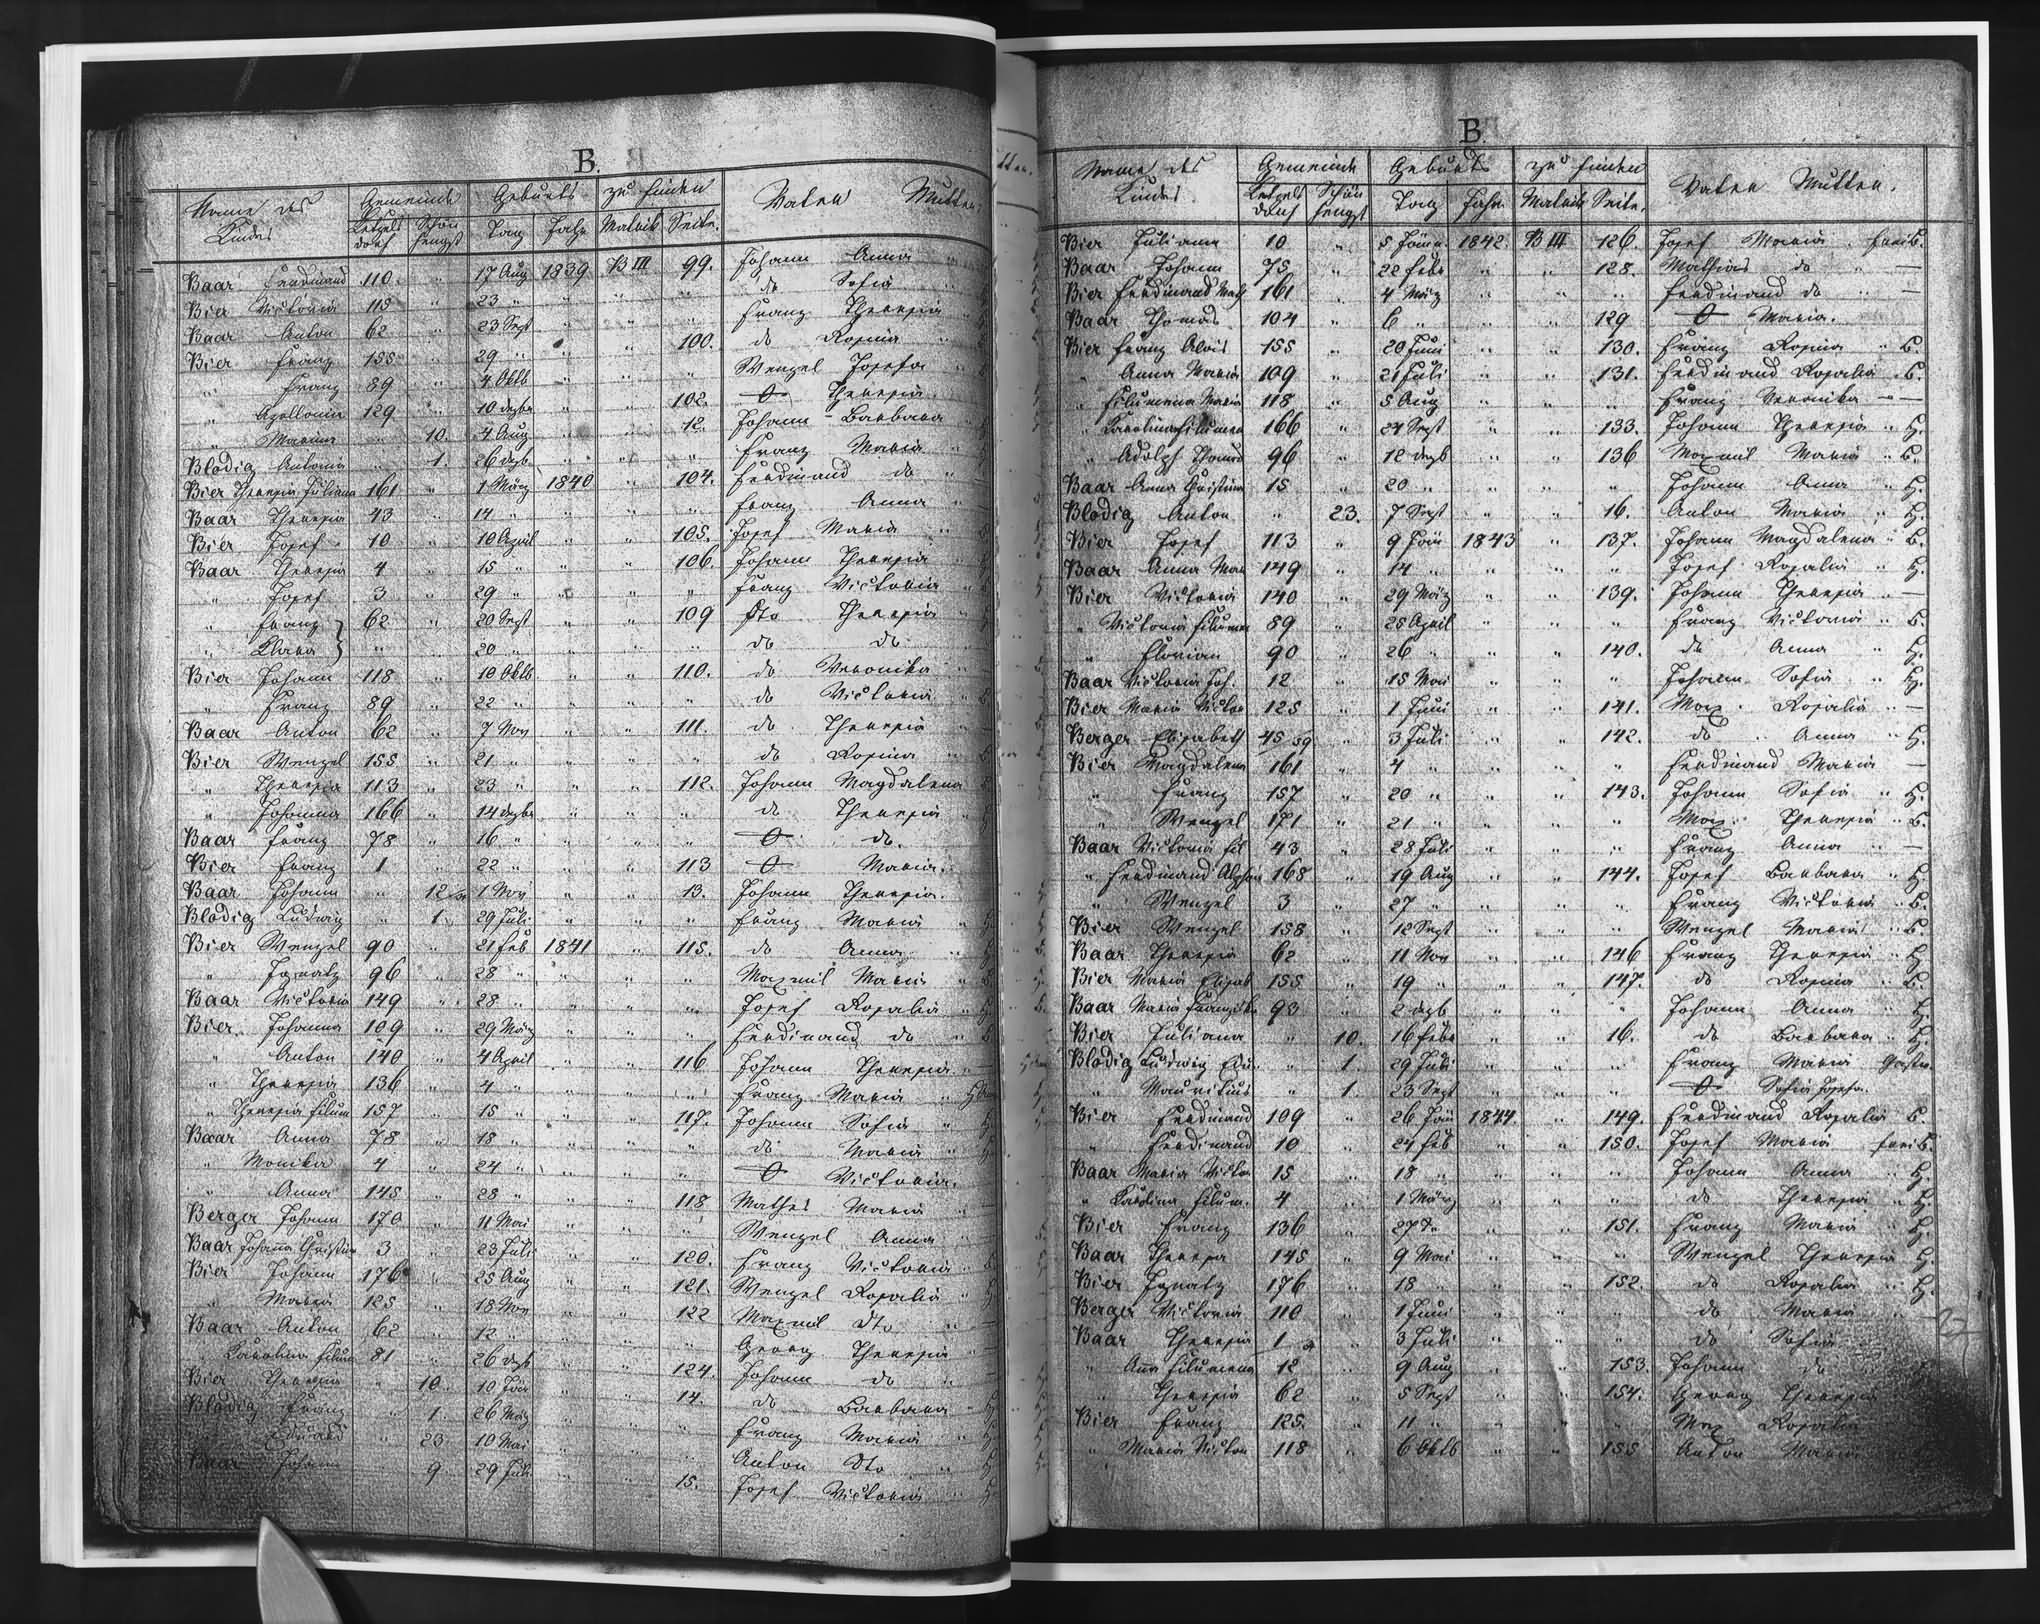 B.
Name des Kindes Gemeinde Geburts zu finden Vater Mutter
Letzelsdorf Schönhengst Tag Jahr Matrik Seite.
Baar Ferdinand 110 " 17 Aug 1839 B III 99. Johann Anna
Bier Victoria 118 " 23 " " " " do Sofia
Baar Anton 62 " 23 Sept " " " Franz Theresia
Bier Franz 155 " 29 " " " 100. do Rosina
" Franz 89 " 4 Oktb " " " Wenzel Josefa
" Apollonia 129 " 10 dezbr " " 102. O Theresia
" Mariana " 10. 4 Aug " " 12. Johann Barbara
Blodig Antonia " 1. 26 dezb " " " Franz Maria
Bier Theresia Juliana 161 " 1 März 1840 " 104. Ferdinand do
Baar Theresia 43 " 14 " " " " Franz Anna
Bier Josef 10 " 10 April " " 105. Josef Maria
Baar Theresia 4 " 15 " " " 106. Johann Theresia
" Josef 3 " 29 " " " " Franz Victoria
" Franz } 62 " 20 Sept " " 109 Dto Theresia
" Klara } " 20 " " " " do do
Bier Johann 118 " 10 Oktb " " 110. do Veronika
" Franz 89 " 22 " " " " do Victoria
Baar Anton 62 " 7 Nov " " 111. do Theresia
Bier Wenzel 155 " 21 " " " " do Rosina
" Theresia 113 " 23 " " " 112. Johann Magdalena
" Johanna 166 " 14 dezbr " " " do Theresia
Baar Franz 78 " 16 " " " " O do.
Bier Franz 1 " 22 " " " 113 O Maria.
Baar Johann " 12 1 Nov " " 13. Johann Theresia.
Blodig Ludwig " 1. 29 Juli " " " Franz Maria
Bier Wenzel 90 " 21 Feb 1841 " 115. do Anna
" Ignatz 96 " 28 " " " " Maxmil Maria
Baar Victoria 149 " 28 " " " " Josef Rosalia
Bier Johanna 109 " 29 März " " " Ferdinand do
" Anton 140 " 4 April " " 116 Johann Theresia
" Theresia 136 " 4 " " " " Franz Maria
" Theresia Filum 157 " 15 " " " 117. Johann Sofia
Baar Anna 78 " 18 " " " " do Maria
" Monika 4 " 24 " " " " O Victoria.
" Anna 145 " 28 " " " 118 Mathes Maria
Berger Johann 170 " 11 Mai " " " Wenzel Anna
Baar Johana Christina 3 " 23 Juli " " 120. Franz Victoria
Bier Johann 176 " 25 Aug " " 121. Wenzel Rosalia
" Maria 125 " 18 Nov " " 122 Maxmil Dto
Baar Anton 62 " 12 " " " " Georg Theresia
" Karolina Filum 81 " 26 dezb " " 124. Johann do
Bier Theresia " 10. 10 Jän " " 14. do Barbara
Blodig Franz " 1. 26 März " " " Franz Maria
" Eduard " 23. 10 Mai " " " Anton Dto
Baar Johann 9 29 Juli 15. Josef Victoria
B.
Name des Kindes Gemeinde Geburts zu finden Vater Mutter.
Letzelsdorf Schönhengst Tag Jahr Matrik Seite.
Bier Juliana 10 " 5 Jänn. 1842. B III 126. Josef Maria
Baar Johann 75 " 22 Febr " " 128. Mathias do " —
Bier Ferdinand Math 161 " 4 März " " " Ferdinand do " —
Baar Thomas 104 " 6 " " " 129 O Maria.
Bier Franz Alois 155 " 20 Juni " " 130. Franz Rosina " B.
" Anna Maria 109 " 21 Juli " " 131. Ferdinand Rosalia " B.
" Filumena Maria 118 " 5 Aug " " " Franz Veronika — —
" Karolina Filumen 166 " 24 Sept " " 133. Johann Theresia " H.
" Adolf 96 " 12 dezb " " 136 Maxmil Maria " B.
Baar Anna Christina 15 " 20 " " " " Johann Anna " H.
Blodig Anton " 23. 7 Sept " " 16. Anton Maria " H.
Bier Josef 113 " 9 Jän 1843 " 137. Johann Magdalena " B.
Baar Anna Mar 149 " 14 " " " " Josef Rosalia " H.
Bier Victoria 140 " 29 März " " 139. Johann Theresia " —
" Victoria Filumen 89 " 25 April " " " Franz Victoria " B.
" Florian 90 " 26 " " " 140. do Anna " H.
Baar Victoria Joh. 12 " 15 Mai " " " Johann Sofia " H.
Bier Maria Victor 125 " 1 Juni " " 141. Max. Rosalia " —
Berger Elisabeth 45 59 " 3 Juli " " 142. do Anna " H.
Bier Magdalena 161 " 4 " " " " Ferdinand Maria —
" Franz 157 " 20 " " " 143. Johann Sofia " H.
" Wenzel 171 " 21 " " " " Max. Theresia " B.
Baar Victoria Fil 43 " 28 Juli " " " Franz Anna " —
" Ferdinand Alphon 168 " 19 Aug " " 144. Josef Barbara " H.
" Wenzel 3 " 27 " " " " Franz Victoria " B.
Bier Wenzel 158 " 12 Sept " " " Wenzel Maria " B.
Baar Theresia 62 " 11 Nov " " 146 Franz Theresia " H.
Bier Maria Elisab 155 " 19 " " " 147. do Rosina " B.
Baar Maria Franziska 93 " 2 dezb " " " Johann Anna " H.
Bier Juliana " 10. 16 Febr " " 16. do Barbara " H.
Blodig Ludwig Edu. " 1. 29 Juli " " " Franz Maria
" Mauritius " 1. 23 Sept " " " O Sofia Josefa
Bier Ferdinand 109 " 26 Jän 1844. " 149. Ferdinand Rosalia B.
" Ferdinand 10 " 24 Feb " " 150. Josef Maria
Baar Maria Victor 15 " 18 " " " " Johann Anna " H.
" Karolina Filum. 4 " 1 März " " " do Theresia " H.
Bier Franz 136 " 27 " " " 151. Franz Maria " H.
Baar Theresa 145 " 9 Mai " " " Wenzel Theresia H.
Bier Ignatz 176 " 18 " " " 152. do Rosalia " H.
Berger Victoria 110 " 1 Juni " " " do Maria
Baar Theresia 1 " 3 Juli " " " do Sofia
" Ann Filumena 12 " 9 Aug " " 153. Johann do
" Theresia 62 " 5 Sept " " 154. Georg Theresia
Bier Franz 125. " 11 " " " " Max Rosalia
" Maria Victor 118 " 6 Oktb " " 155 Anton Maria